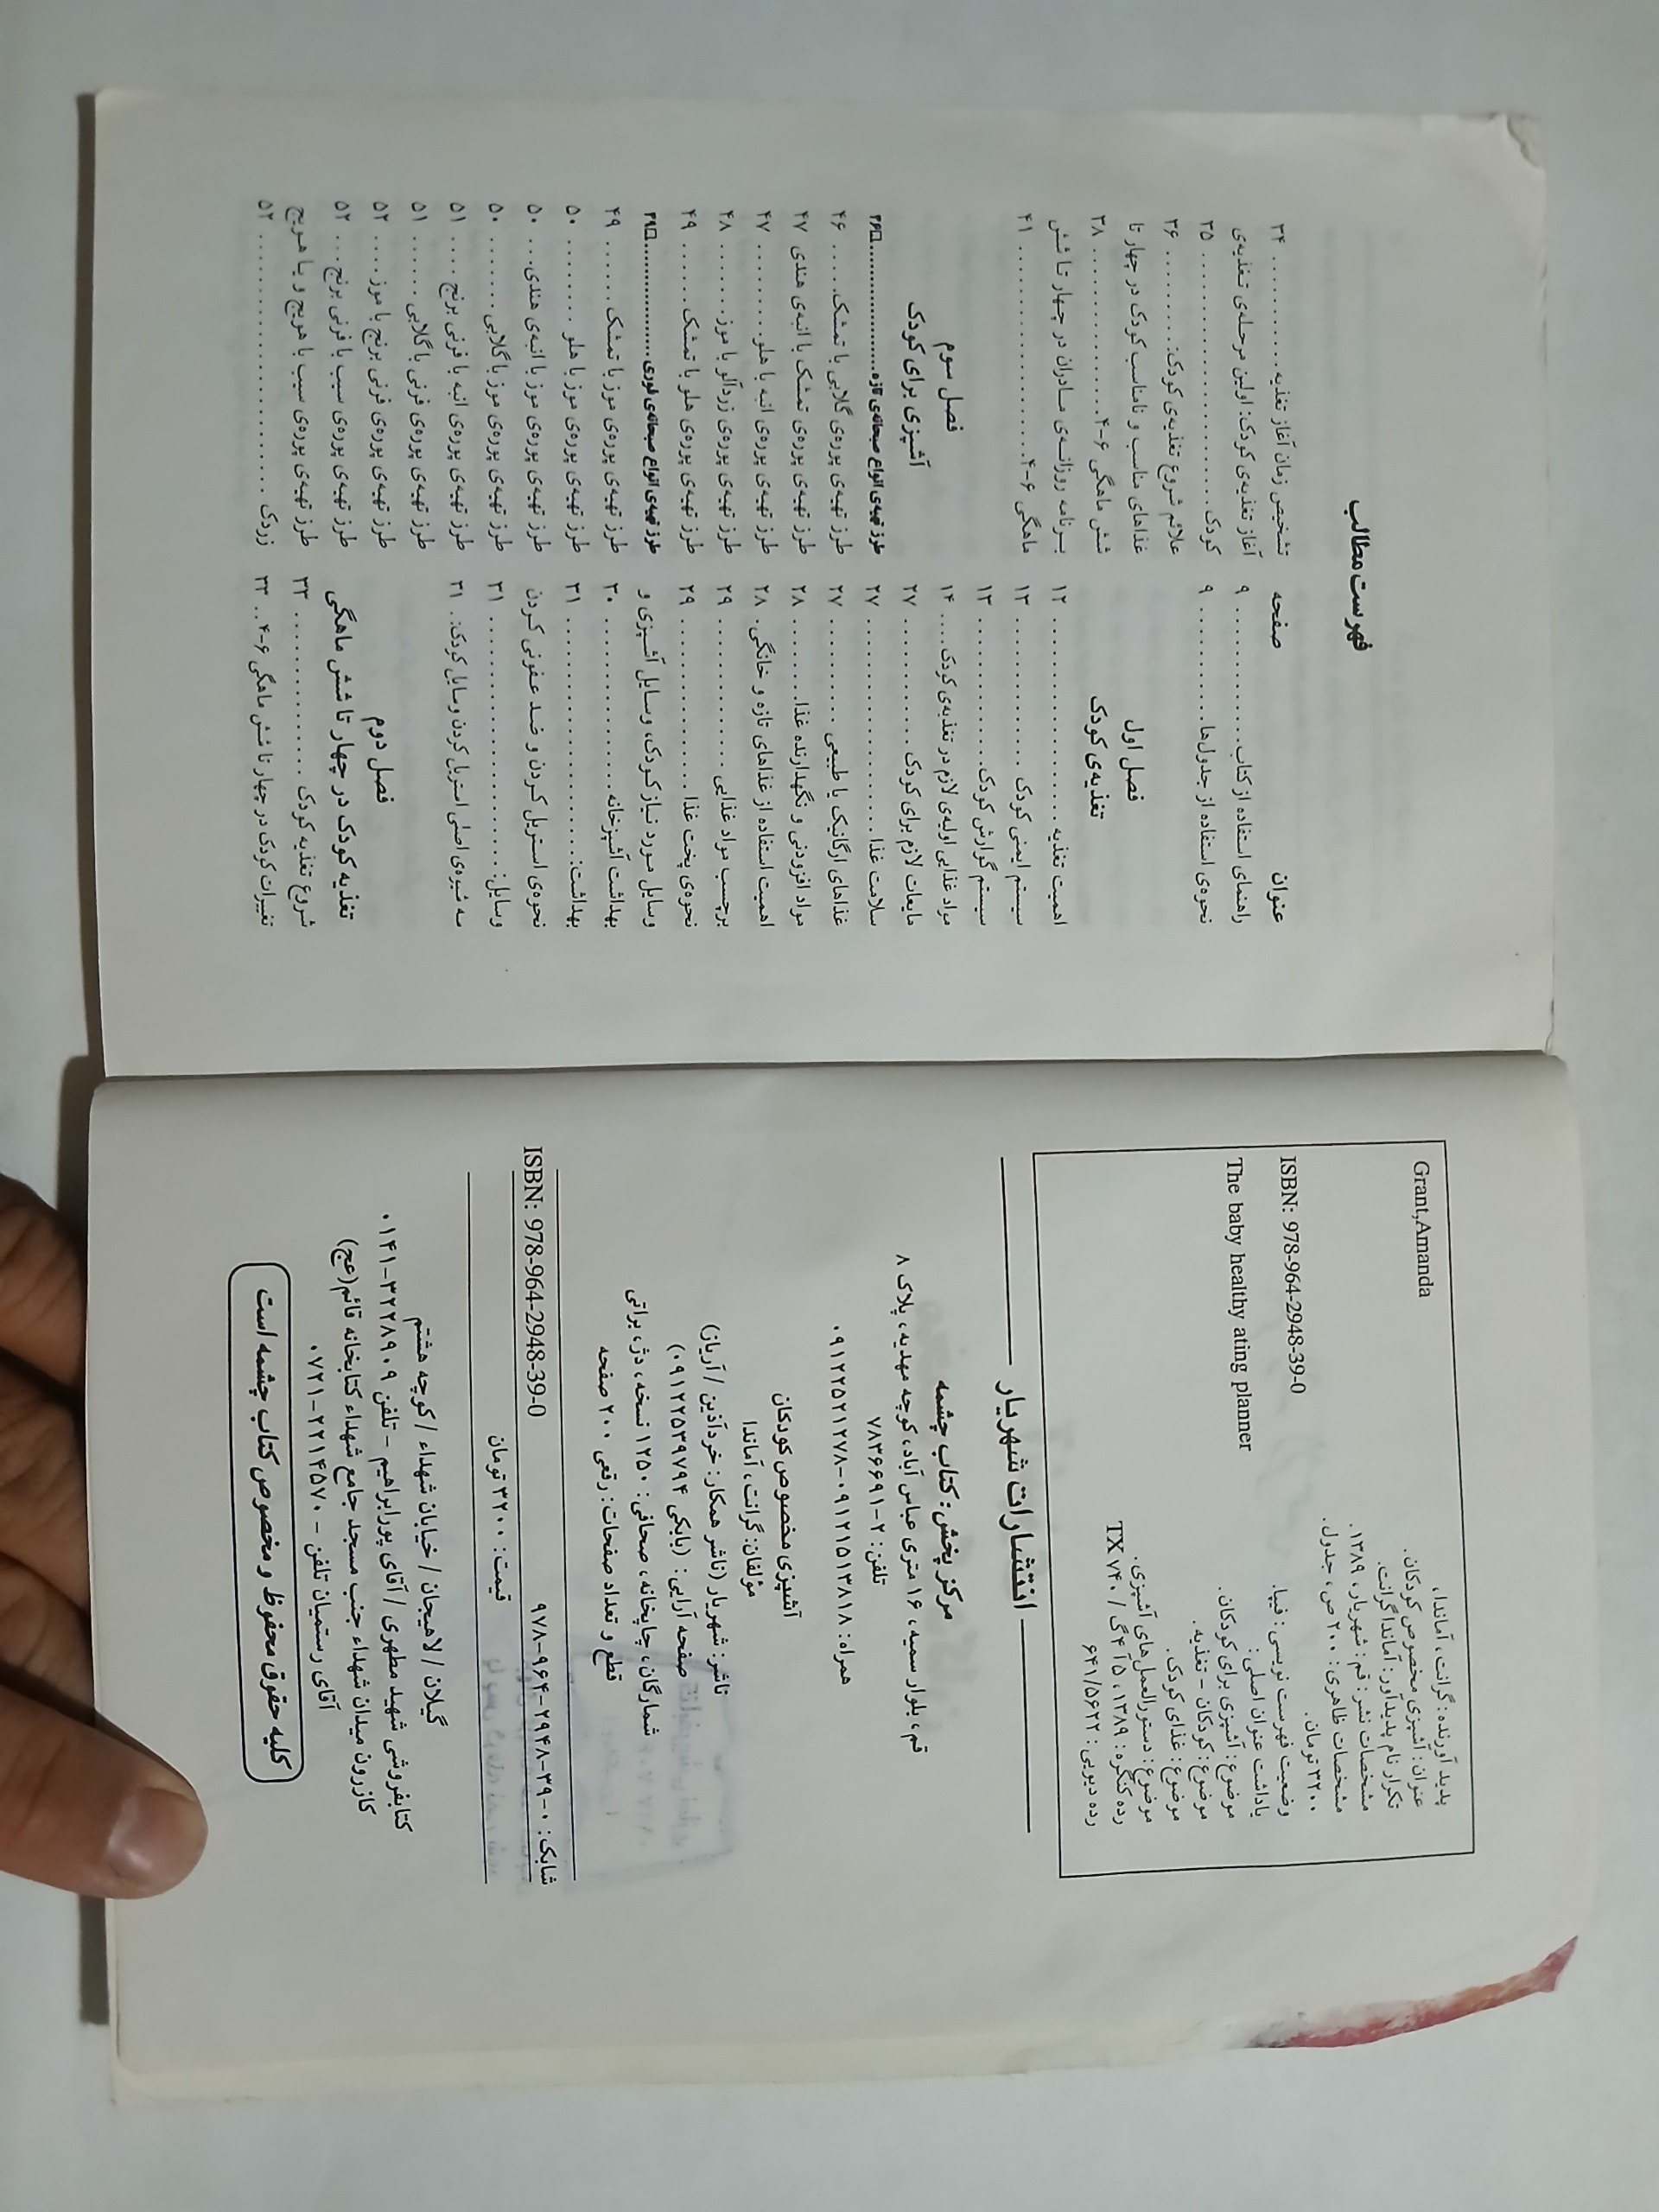 Grant,Amanda
پدید آورنده: گرانت، آماندا،
عنوان: آشپزی مخصوص کودکان.
تکرار نام پدیدآور: آماندا گرانت.
مشخصات نشر: قم: شهریار، ۱۳۸۹.
مشخصات ظاهری: ۲۰۰ ص، جدول.
۳۲۰۰ تومان.
ISBN: 978-964-2948-39-0
وضعیت فهرست نویسی: فیپا.
یاداشت عنوان اصلی:
The baby healthy ating planner
موضوع: آشپزی برای کودکان.
موضوع: کودکان - تغذیه.
موضوع: غذای کودک.
موضوع: دستورالعمل‌های آشپزی.
رده کنگره: ۱۳۸۹، ۵ آ ۴ گ / ۷۴۰ TX
رده دیویی: ۶۴۱/۵۶۲۲
انتشارات شهریار
مرکز پخش: کتاب چشمه
قم، بلوار سمیه، ۱۶ متری عباس آباد، کوچه مهدیه، پلاک ۸
تلفن: ۲-۷۸۳۶۶۹۱
همراه: ۰۹۱۲۱۵۱۳۸۱۸-۰۹۱۲۲۵۲۱۲۷۸
آشپزی مخصوص کودکان
مؤلفان: گرانت، آماندا
ناشر: شهریار (ناشر همکار: خردآذین / آریاز)
صفحه آرایی: (بابکی ۰۹۱۲۲۵۳۹۷۹۴)
شمارگان، چاپخانه، صحافی: ۱۲۵۰ نسخه، دژ، براتی
قطع و تعداد صفحات: رقعی ۲۰۰ صفحه
شابک: ۰-۳۹-۲۹۴۸-۹۶۴-۹۷۸ ISBN: 978-964-2948-39-0
قیمت: ۳۲۰۰ تومان
گیلان / لاهیجان / خیابان شهداء / کوچه هشتم
کتابفروشی شهید مطهری / آقای پورابراهیم - تلفن ۳۲۲۸۹۰۹-۰۱۴۱
کازرون میدان شهداء جنب مسجد جامع شهداء کتابخانه قائم(عج)
آقای رستمیان تلفن - ۲۲۱۴۵۷۰-۰۷۲۱
کلیه حقوق محفوظ و مخصوص کتاب چشمه است
فهرست مطالب
عنوان صفحه
راهنمای استفاده از کتاب . . . . . . . . . . ۹
نحوه‌ی استفاده از جدول‌ها . . . . . . . . . ۹
فصل اول
تغذیه‌ی کودک
اهمیت تغذیه . . . . . . . . . . . . . . . . ۱۲
سیستم ایمنی کودک . . . . . . . . . . . . ۱۳
سیستم گوارش کودک . . . . . . . . . . . ۱۳
مواد غذایی اولیه‌ی لازم در تغذیه‌ی کودک . . . . ۱۴
مایعات لازم برای کودک . . . . . . . . . ۲۷
سلامت غذا . . . . . . . . . . . . . . . . ۲۷
غذاهای ارگانیک یا طبیعی . . . . . . . . ۲۷
مواد افزودنی و نگهدارنده غذا . . . . . . ۲۸
اهمیت استفاده از غذاهای تازه و خانگی . ۲۸
برچسب مواد غذایی . . . . . . . . . . . ۲۹
نحوه‌ی پخت غذا . . . . . . . . . . . . . ۲۹
وسایل مورد نیاز کودک، وسایل آشپزی و
بهداشت آشپزخانه . . . . . . . . . . . . ۳۰
بهداشت: . . . . . . . . . . . . . . . . . ۳۱
نحوه‌ی استریل کردن و ضد عفونی کردن
وسایل: . . . . . . . . . . . . . . . . . . ۳۱
سه شیوه‌ی اصلی استریل کردن وسایل کودک: . . ۳۱
فصل دوم
تغذیه کودک در چهار تا شش ماهگی
شروع تغذیه کودک . . . . . . . . . . . . ۳۳
تغییرات کودک در چهار تا شش ماهگی ۶-۴ . . ۳۳
تشخیص زمان آغاز تغذیه . . . . . . . . . ۳۴
آغاز تغذیه‌ی کودک: اولین مرحله‌ی تغذیه‌ی
کودک . . . . . . . . . . . . . . . . . . . ۳۵
علائم شروع تغذیه‌ی کودک: . . . . . . . ۳۶
غذاهای مناسب و نامناسب کودک در چهار تا
شش ماهگی ۶-۴ . . . . . . . . . . . . . ۳۸
برنامه روزانه‌ی مادران در چهار تا شش
ماهگی ۶-۴ . . . . . . . . . . . . . . . . ۴۱
فصل سوم
آشپزی برای کودک
طرز تهیه‌ی انواع صبحانه‌ی تازه . . . . . . . . . . ۴۶
طرز تهیه‌ی پوره‌ی گلابی با تمشک . . . . ۴۶
طرز تهیه‌ی پوره‌ی تمشک با انبه‌ی هندی ۴۷
طرز تهیه‌ی پوره‌ی انبه با هلو . . . . . . . ۴۷
طرز تهیه‌ی پوره‌ی زردآلو با موز . . . . . . ۴۸
طرز تهیه‌ی پوره‌ی هلو با تمشک . . . . . ۴۹
طرز تهیه‌ی انواع صبحانه‌ی فوری . . . . . . . . . . ۴۹
طرز تهیه‌ی پوره‌ی موز با تمشک . . . . . ۴۹
طرز تهیه‌ی پوره‌ی موز با هلو . . . . . . . ۵۰
طرز تهیه‌ی پوره‌ی موز با انبه‌ی هندی . . . ۵۰
طرز تهیه‌ی پوره‌ی موز با گلابی . . . . . . ۵۰
طرز تهیه‌ی پوره‌ی انبه با فرنی برنج . . . . ۵۱
طرز تهیه‌ی پوره‌ی فرنی با گلابی . . . . . ۵۱
طرز تهیه‌ی پوره‌ی فرنی برنج با موز . . . . ۵۲
طرز تهیه‌ی پوره‌ی سیب با فرنی برنج . . . ۵۲
طرز تهیه‌ی پوره‌ی سیب با هویج و یا هویج
زردک . . . . . . . . . . . . . . . . . . . ۵۲